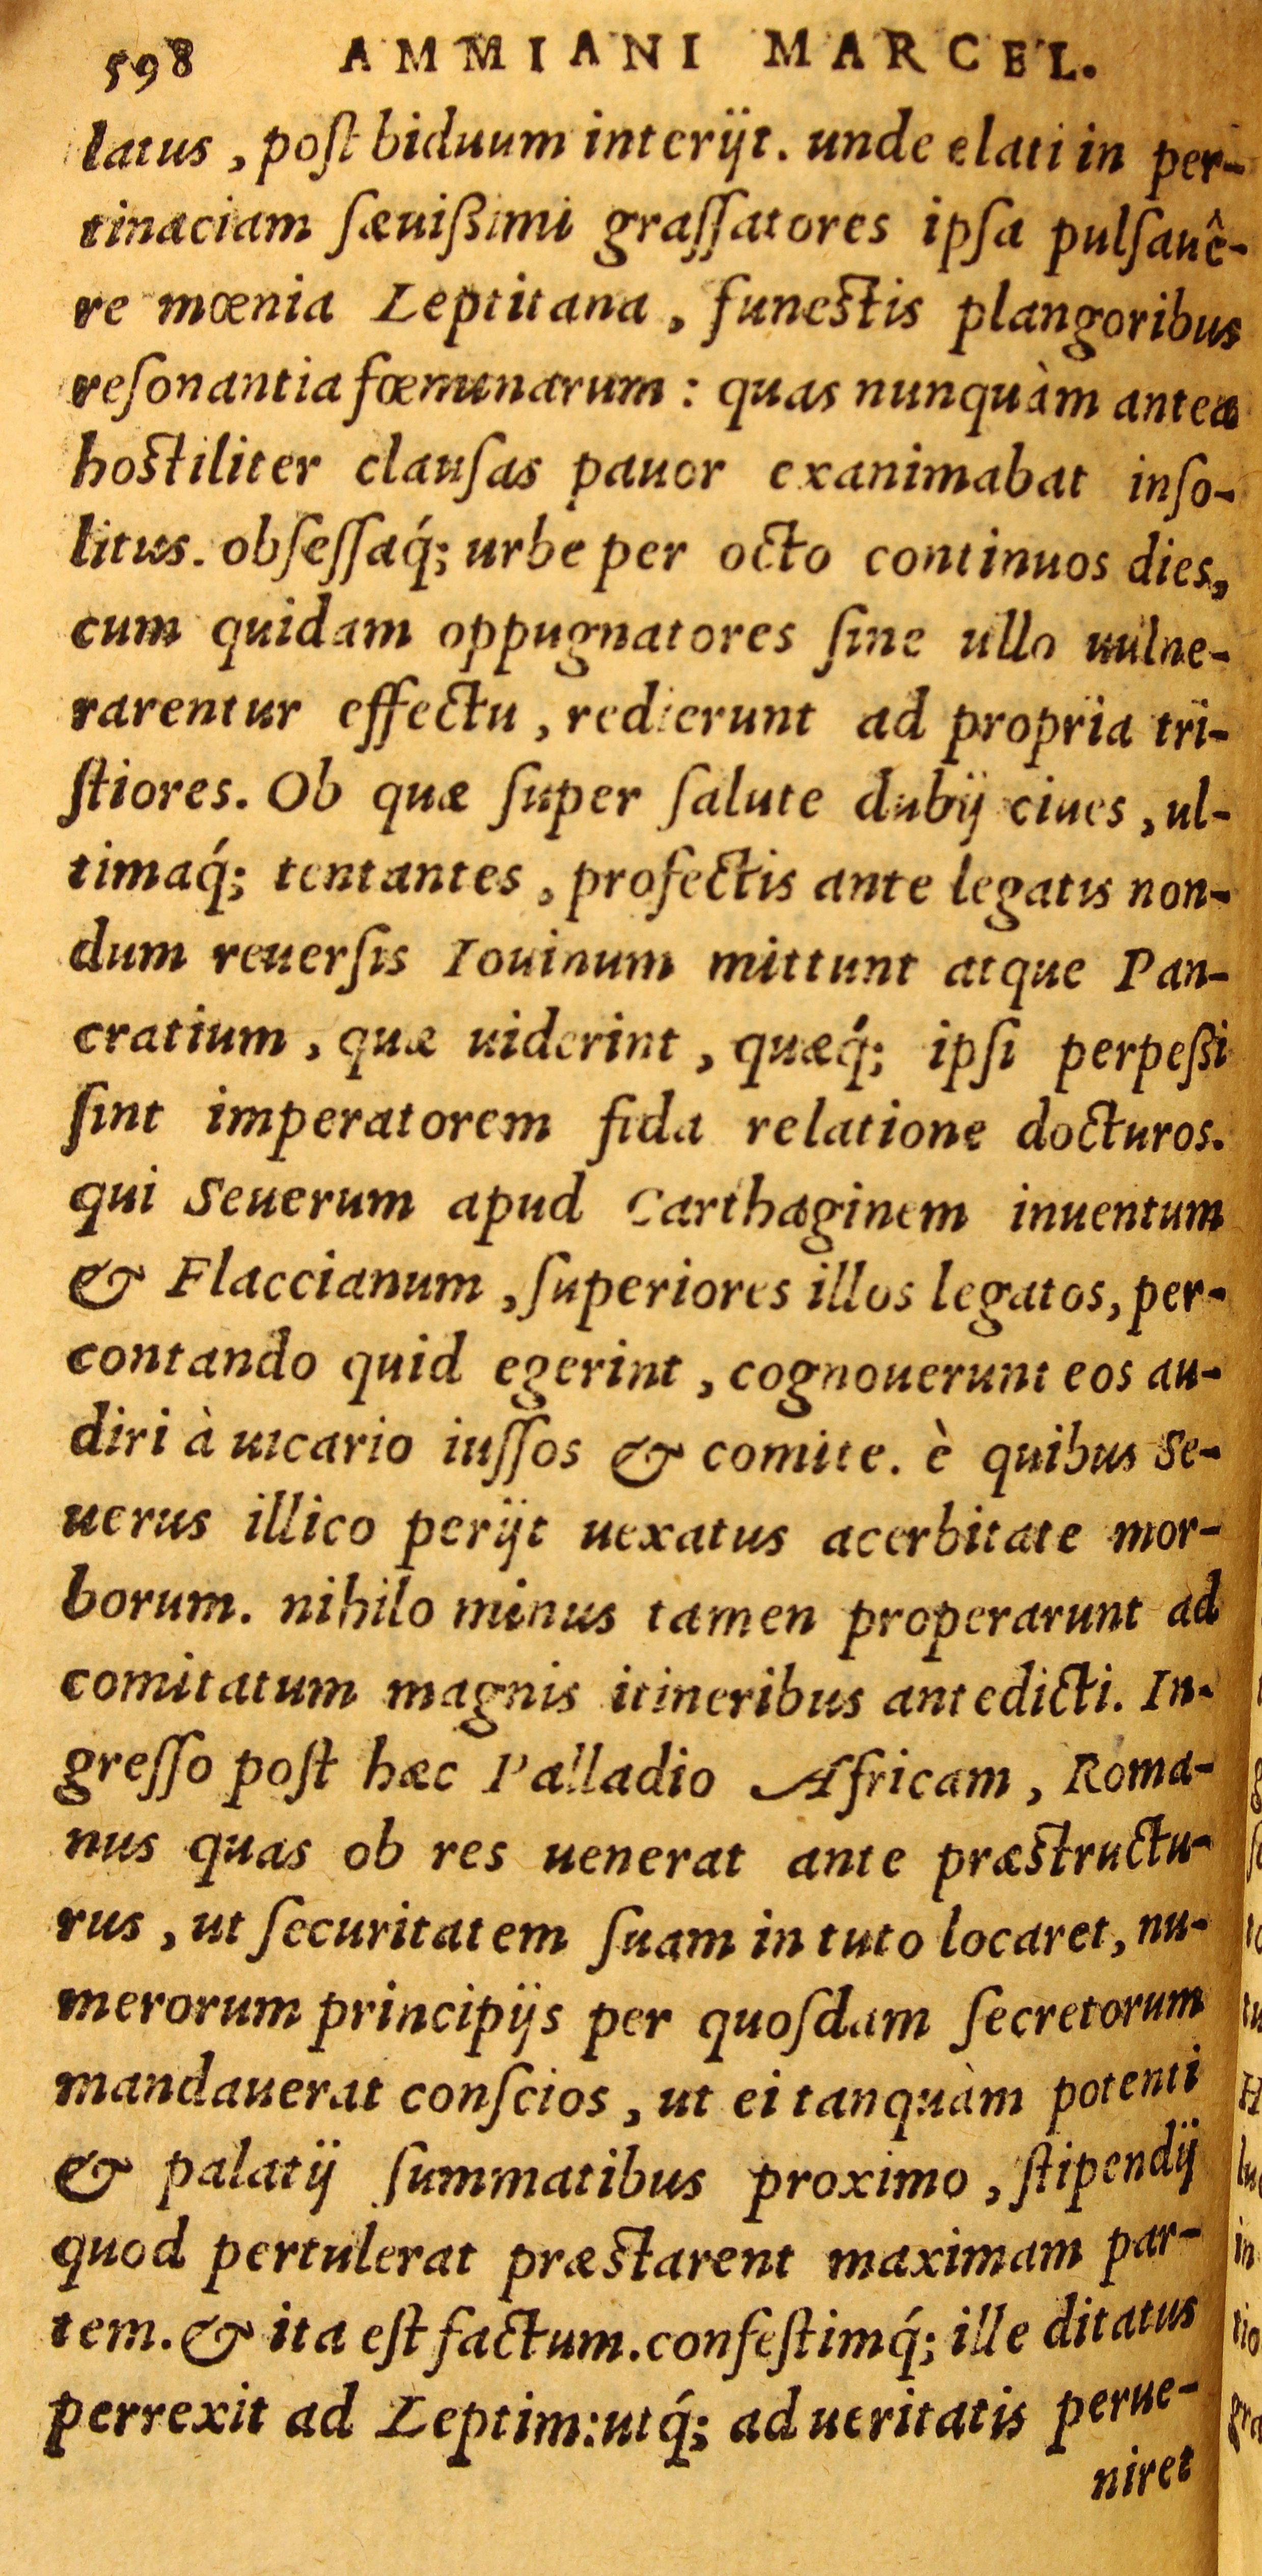 598 AMMIANI MARCEL.
latus, poſt biduum interijt. unde elati in per-
tinaciam ſæuißimi graſſatores ipſa pulſauê-
re mœnia Leptitana, funeſtis plangoribus
reſonantia fœminarum: quas nunquàm antea
hoſtiliter clauſas pauor exanimabat inſo-
litus. obſeſſaq́; urbe per octo continuos dies,
cum quidam oppugnatores ſine ullo uulne-
rarentur effectu, redierunt ad propria tri-
ſtiores. Ob quæ ſuper ſalute dubij ciues, ul-
timaq́; tentantes, profectis ante legatis non-
dum reuerſis Iouinum mittunt atque Pan-
cratium, quæ uiderint, quæq́; ipſi perpeßi
ſint imperatorem fida relatione docturos.
qui Seuerum apud Carthaginem inuentum
& Flaccianum, ſuperiores illos legatos, per-
contando quid egerint, cognouerunt eos au-
diri à uicario iuſſos & comite. è quibus Se-
uerus illico perijt uexatus acerbitate mor-
borum. nihilo minus tamen properarunt ad
comitatum magnis itineribus antedicti. In-
greſſo poſt hæc Palladio Africam, Roma-
nus quas ob res uenerat ante præſtructu-
rus, ut ſecuritatem ſuam in tuto locaret, nu-
merorum principijs per quoſdam ſecretorum
mandauerat conſcios, ut ei tanquàm potenti
& palatij ſummatibus proximo, ſtipendij
quod pertulerat præſtarent maximam par-
tem. & ita eſt factum. confeſtimq́; ille ditatus
perrexit ad Leptim: utq́; ad ueritatis perue-
niret